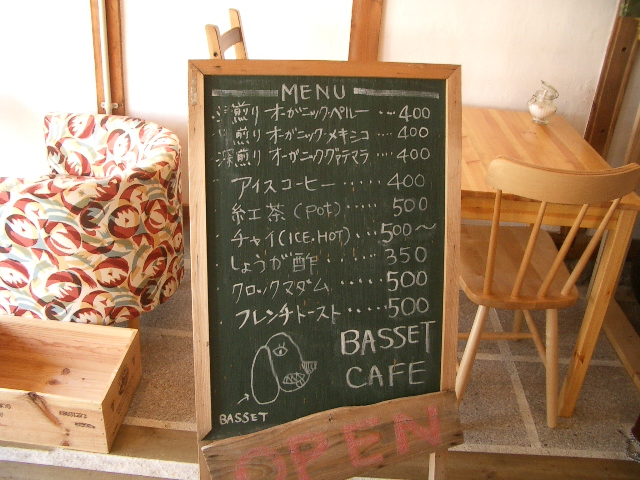 MENU
浅煎り オーガニック・ペルー … 400
煎り オーガニック・メキシコ … 400
深煎り オーガニックグァテマラ … 400
アイスコーヒー ‥‥‥ 400
紅茶 (POT) ‥‥‥ 500
チャイ (ICE, HOT) ‥‥ 500〜
しょうが酢 ‥‥‥‥ 350
クロックマダム ‥‥‥ 500
フレンチトースト ‥‥‥ 500
BASSET
CAFE
BASSET
OPEN